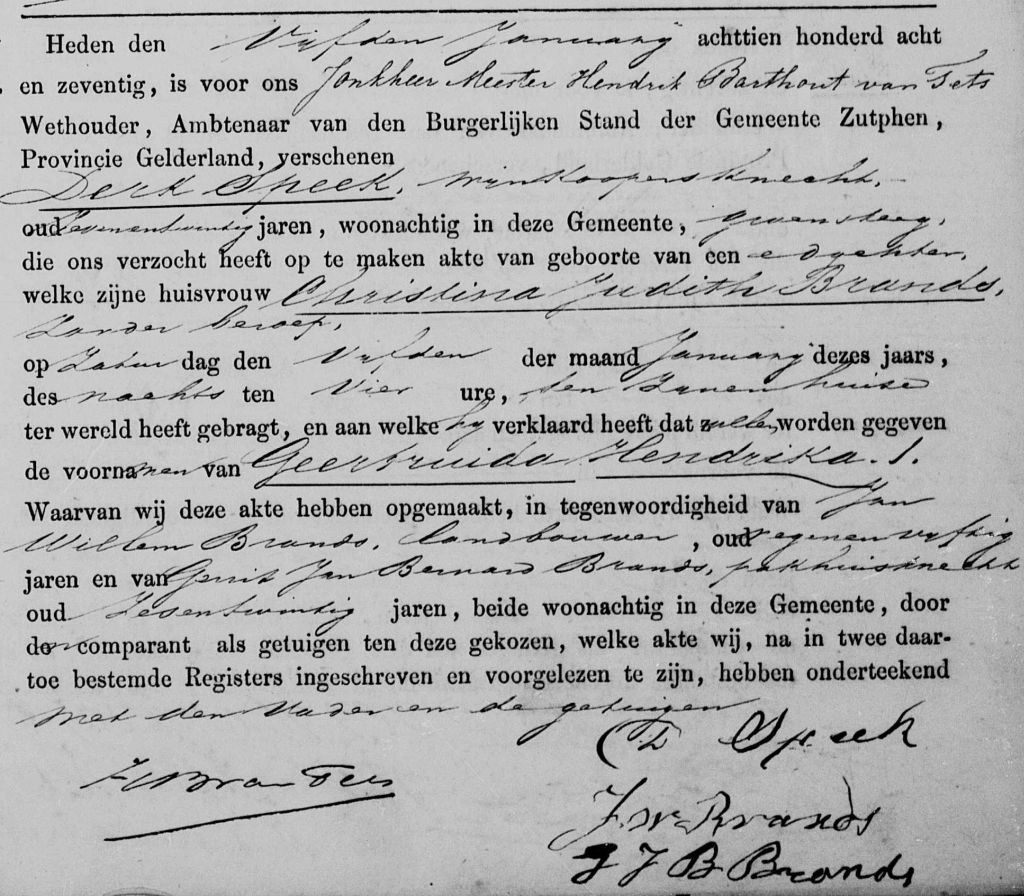 Heden den Vijfden January achttien honderd acht
en zeventig, is voor ons Jonkheer Meester Hendrik Barthout van Tets
Wethouder, Ambtenaar van den Burgerlijken Stand der Gemeente Zutphen,
Provincie Gelderland, verschenen
Derk Speek, wijnkoopersknecht,
oud zevenentwintig jaren, woonachtig in deze Gemeente, groensteeg,
die ons verzocht heeft op te maken akte van geboorte van een e dochter,
welke zijne huisvrouw Christina Judith Brands,
zonder beroep,
op Zatur dag den Vijfden der maand January dezes jaars,
des nachts ten Vier ure, ten zijnen huize
ter wereld heeft gebragt, en aan welke hij verklaard heeft dat zullen worden gegeven
de voornamen van Geertruida Hendrika.
Waarvan wij deze akte hebben opgemaakt, in tegenwoordigheid van Jan
Willem Brands, landbouwer, oud negenenvijftig
jaren en van Gerrit Jan Bernard Brands, pakhuisknecht
oud zesentwintig jaren, beide woonachtig in deze Gemeente, door
den comparant als getuigen ten deze gekozen, welke akte wij, na in twee daar-
toe bestemde Registers ingeschreven en voorgelezen te zijn, hebben onderteekend
met den Vader en de getuigen
D Speek
HB van Tets
J. W. Brands
G J B Brands